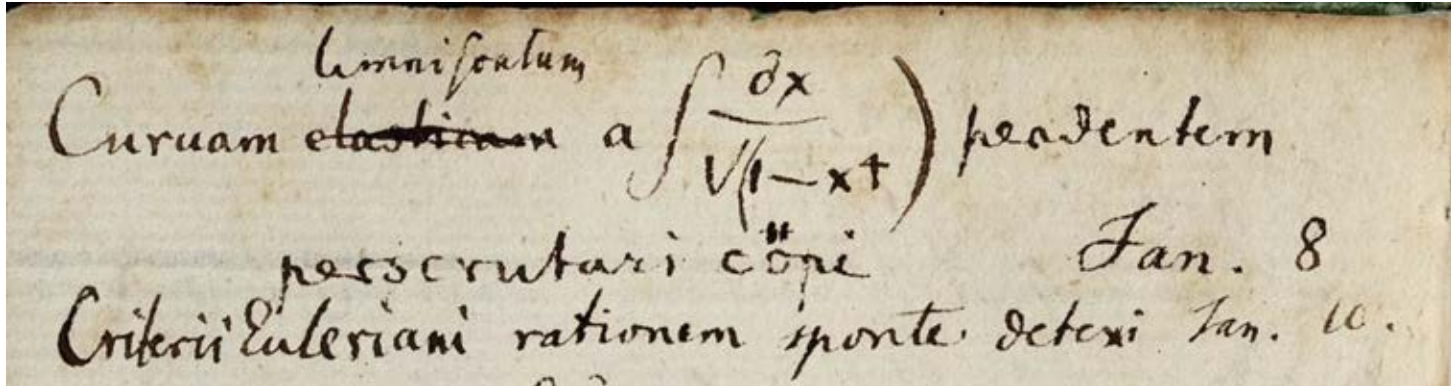 lemniscatam
Curvam elasticam a ∫ dx/√(1-x4) pendentem
perscrutari cöpi Jan. 8
Criterii Euleriani rationem sponte detexi Jan. 10.